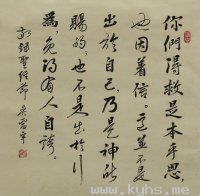 你們得救是本乎恩，
也因着信。這並不是
出於自己，乃是神所
賜的，也不是出於行
為，免得有人自誇。
敬錄聖經節
www.kyhs.me